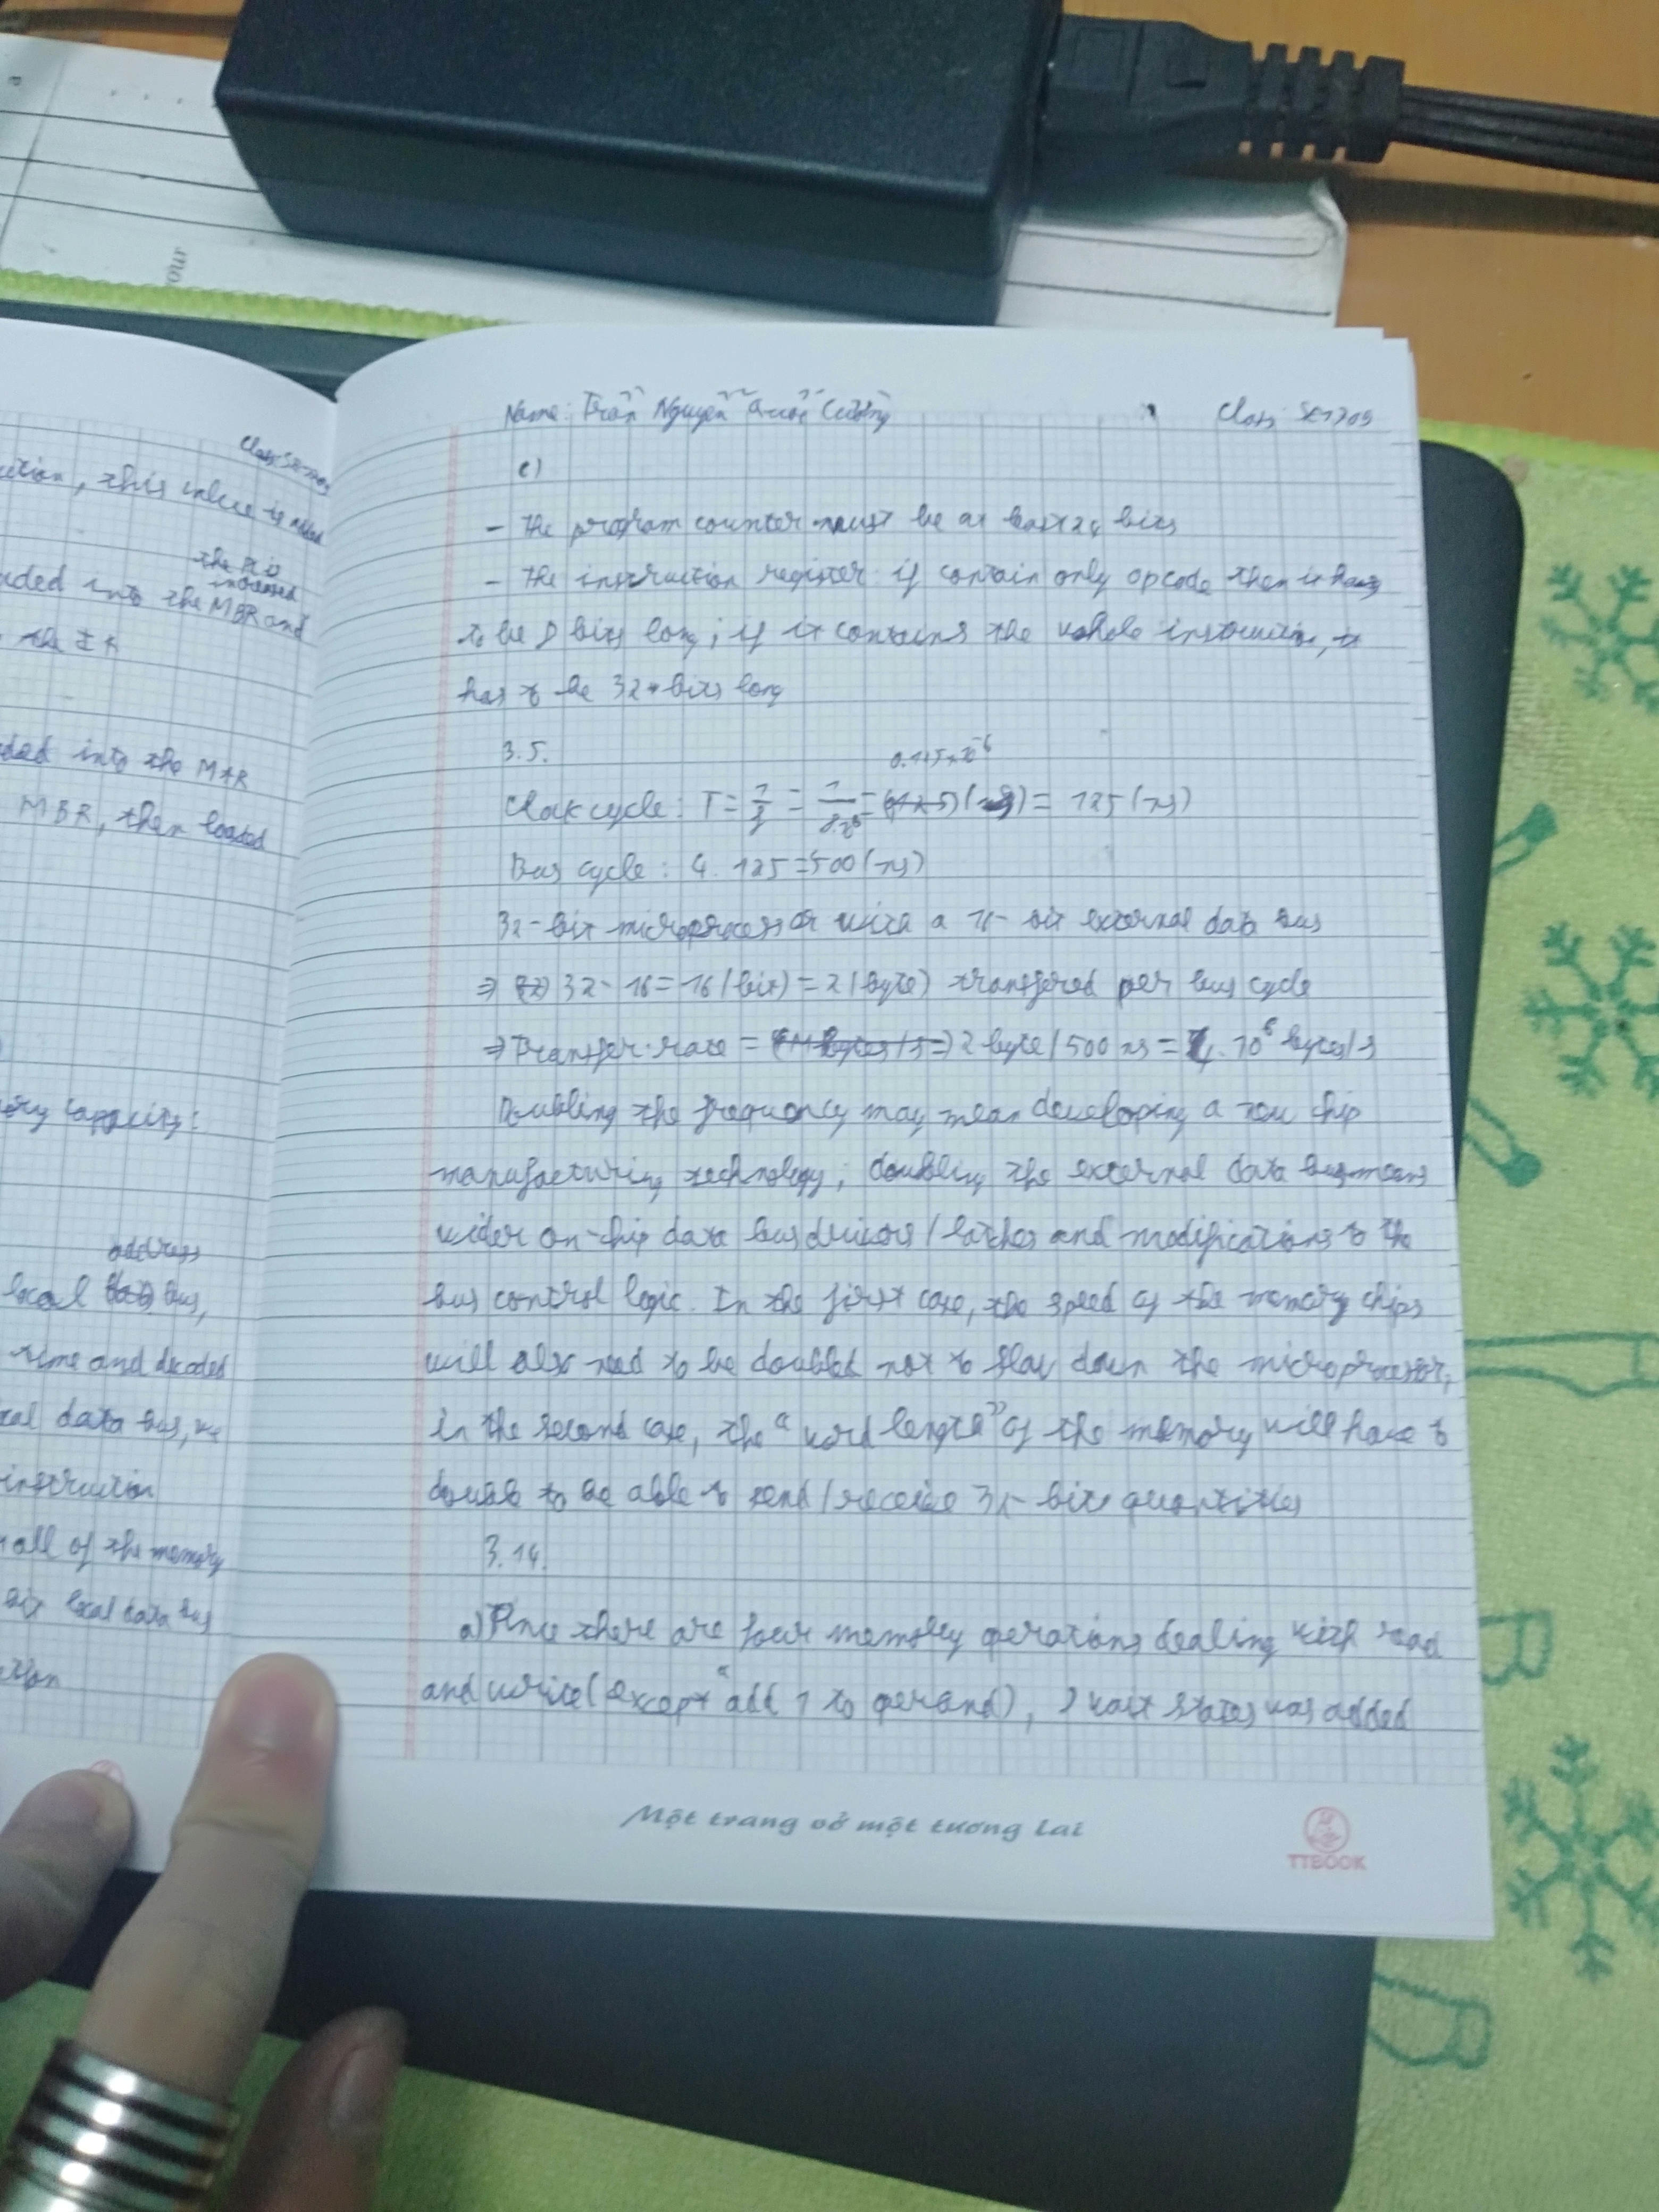 our
Class: SE1709
ution, this value is added
the PC is
increased
ded into the MBR and
the IR
ded into the MAR
MBR, then loaded
ory capacity:
address
local bus,
time and decoded
cal data bus, we
instruction
all of the memory
bit local data bus
tion
Name: Trần Nguyễn Quốc Cường Class: SE1709
c)
- The program counter must be at least 24 bits
- The instruction register: if contain only opcode then it has
to be 8 bits long; if it contains the whole instruction, it
has to be 32-bits long
3.5.
0.125x10^-6
Clock cycle: T = 1/f = = 125 (ns)
Bus cycle: 4. 125 = 500 (ns)
32-bit microprocessor with a 16-bit external data bus
⇒ 32 - 16 = 16 (bit) = 2 (byte) transfered per bus cycle
⇒ Transfer rate = 2 byte / 500 ns = 4. 10^6 bytes/s
Doubling the frequency may mean developing a new chip
manufacturing technology; doubling the external data bus means
wider on-chip data bus drivers / latches and modifications to the
bus control logic. In the first case, the speed of the memory chips
will also need to be doubled not to slow down the microprocessor;
in the second case, the "word length" of the memory will have to
double to be able to send / receive 32-bit quantities
3.14.
a) Since there are four memory operations dealing with read
and write (except "add 1 to operand), wait states was added
Một trang vở một tương lai
TTBOOK